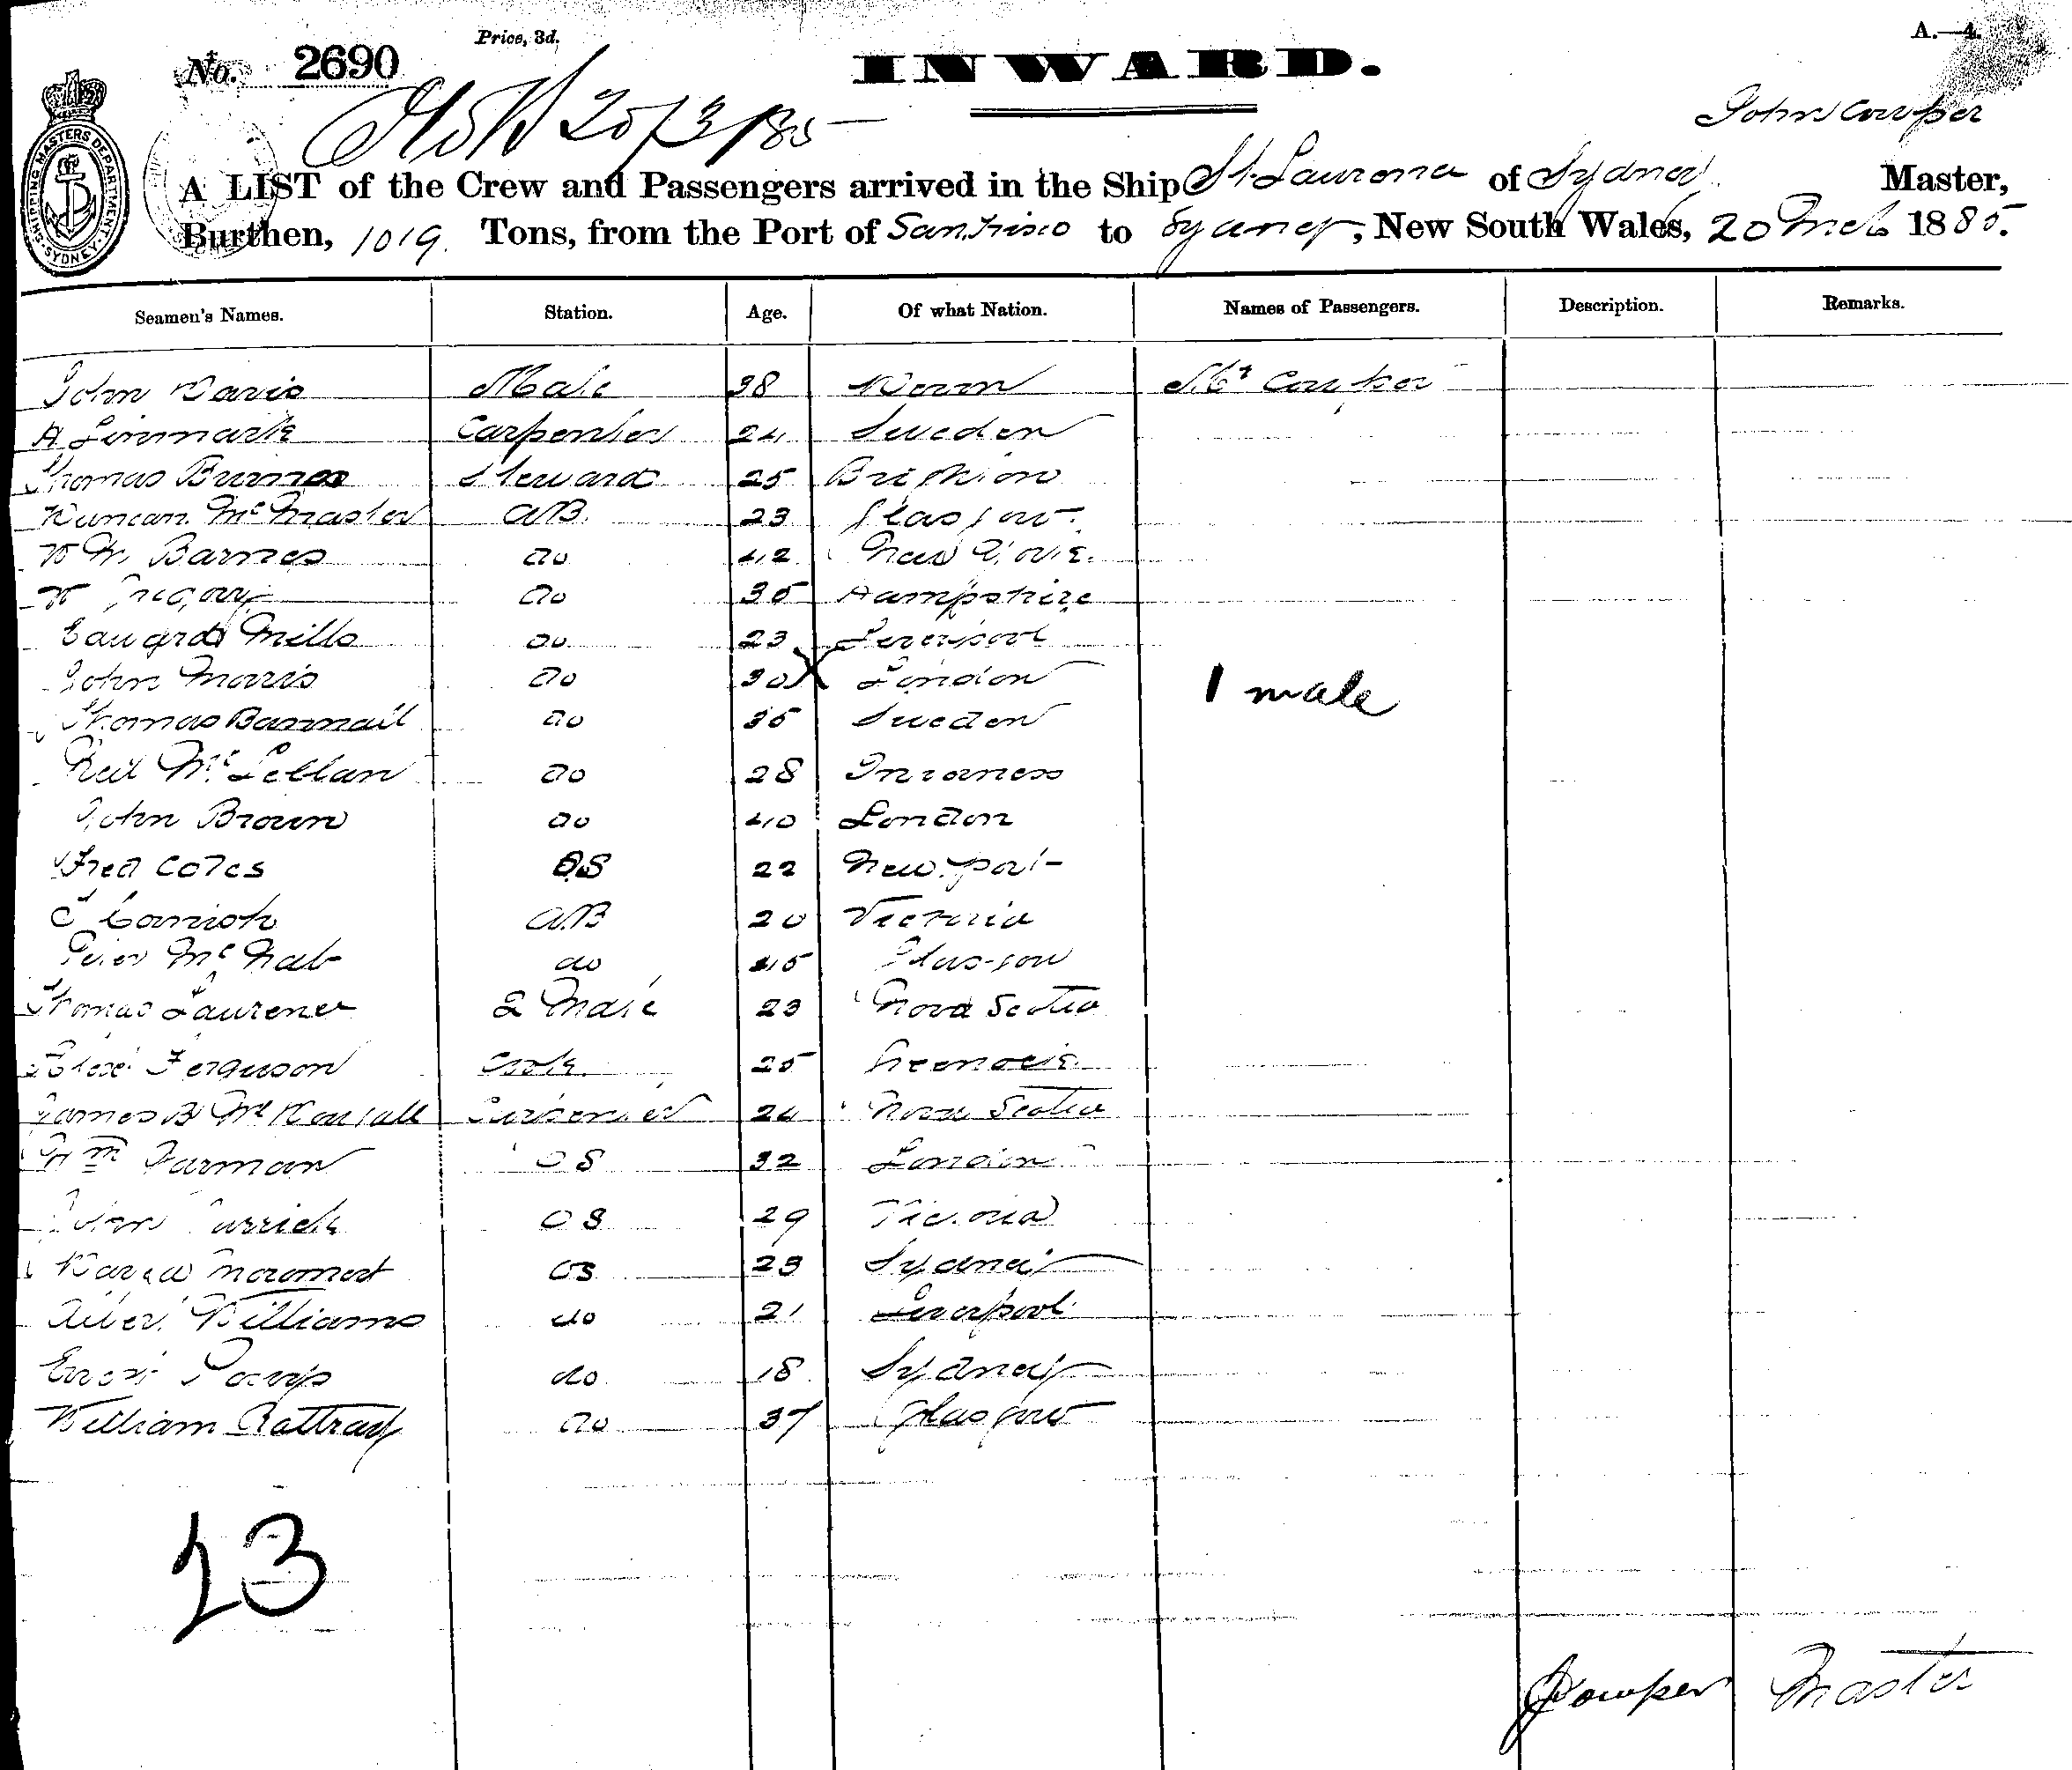 A.—4.
Price, 3d.
No. 2690
INWARD.
20/3/85
John Cowper
SHIPPING MASTERS DEPARTMENT SYDNEY
A LIST of the Crew and Passengers arrived in the Ship St. Laurence of Sydney Master,
Burthen, 1019. Tons, from the Port of San. Frisco to Sydney, New South Wales, 20 Mch 1885.
Seamen's Names. Station. Age. Of what Nation. Names of Passengers. Description. Remarks.
John Davis Mate 38 Cowper
A Linmark Carpenter 24 Sweden
Thomas Burnes Steward 25 Brighton
Duncan McMaster AB. 23 Glasgow
W W Barnes do 42 New York.
W Gregory do 35 Hampshire
Edward Mills do 23 Liverpool
John Morris do 30 London
1 male
Thomas do 35 Sweden
Neil McLellan do 28 Inverness
John Brown do 40 London
Fred Coles OS 22 Newport
AB 20 Victoria
Peter McNab do 45 Glasgow
Thomas Laurence 2 Mate 23 Nova Scotia
Ferguson Cook 25 Greenock
James B Mc Carpenter 24 Nova Scotia
Wm Farman OS 32 London
John OS 29 Victoria
David OS 23 Sydney
Albert Williams do 21 Liverpool
do 18 Sydney
William Rattray do 37 Glasgow
23
J Cowper Master